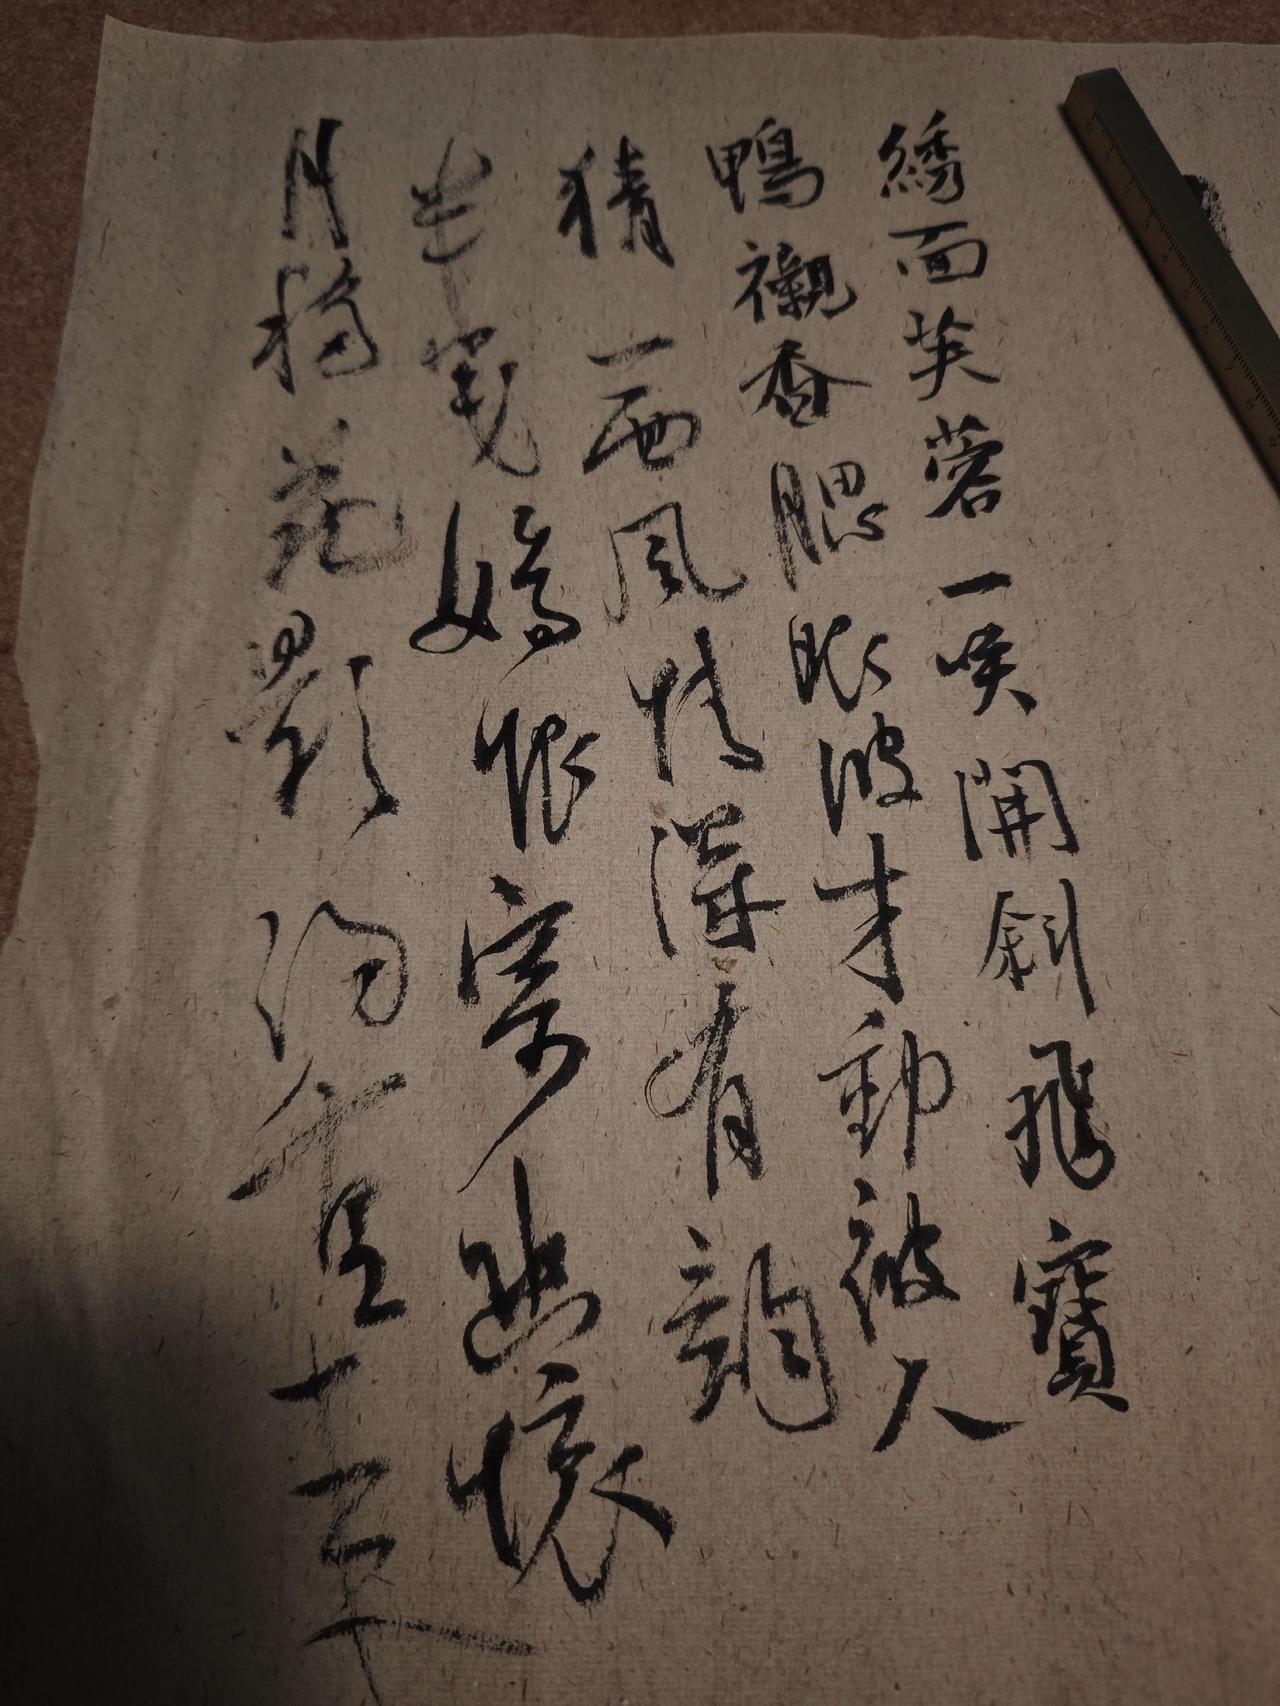 繡面芙蓉一笑開斜飛寶
鴨襯香腮眼波才動被人
猜一面風情深有韻
半箋嬌恨寄幽懷
月移花影約重來